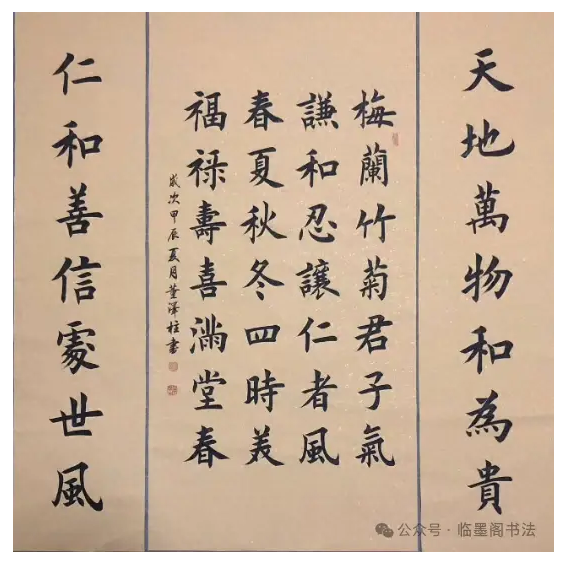 天地萬物和為貴
梅蘭竹菊君子氣
謙和忍讓仁者風
春夏秋冬四時美
福祿壽喜滿堂春
歲次甲辰夏月董澤柱書
仁和善信處世風
公众号·临墨阁书法